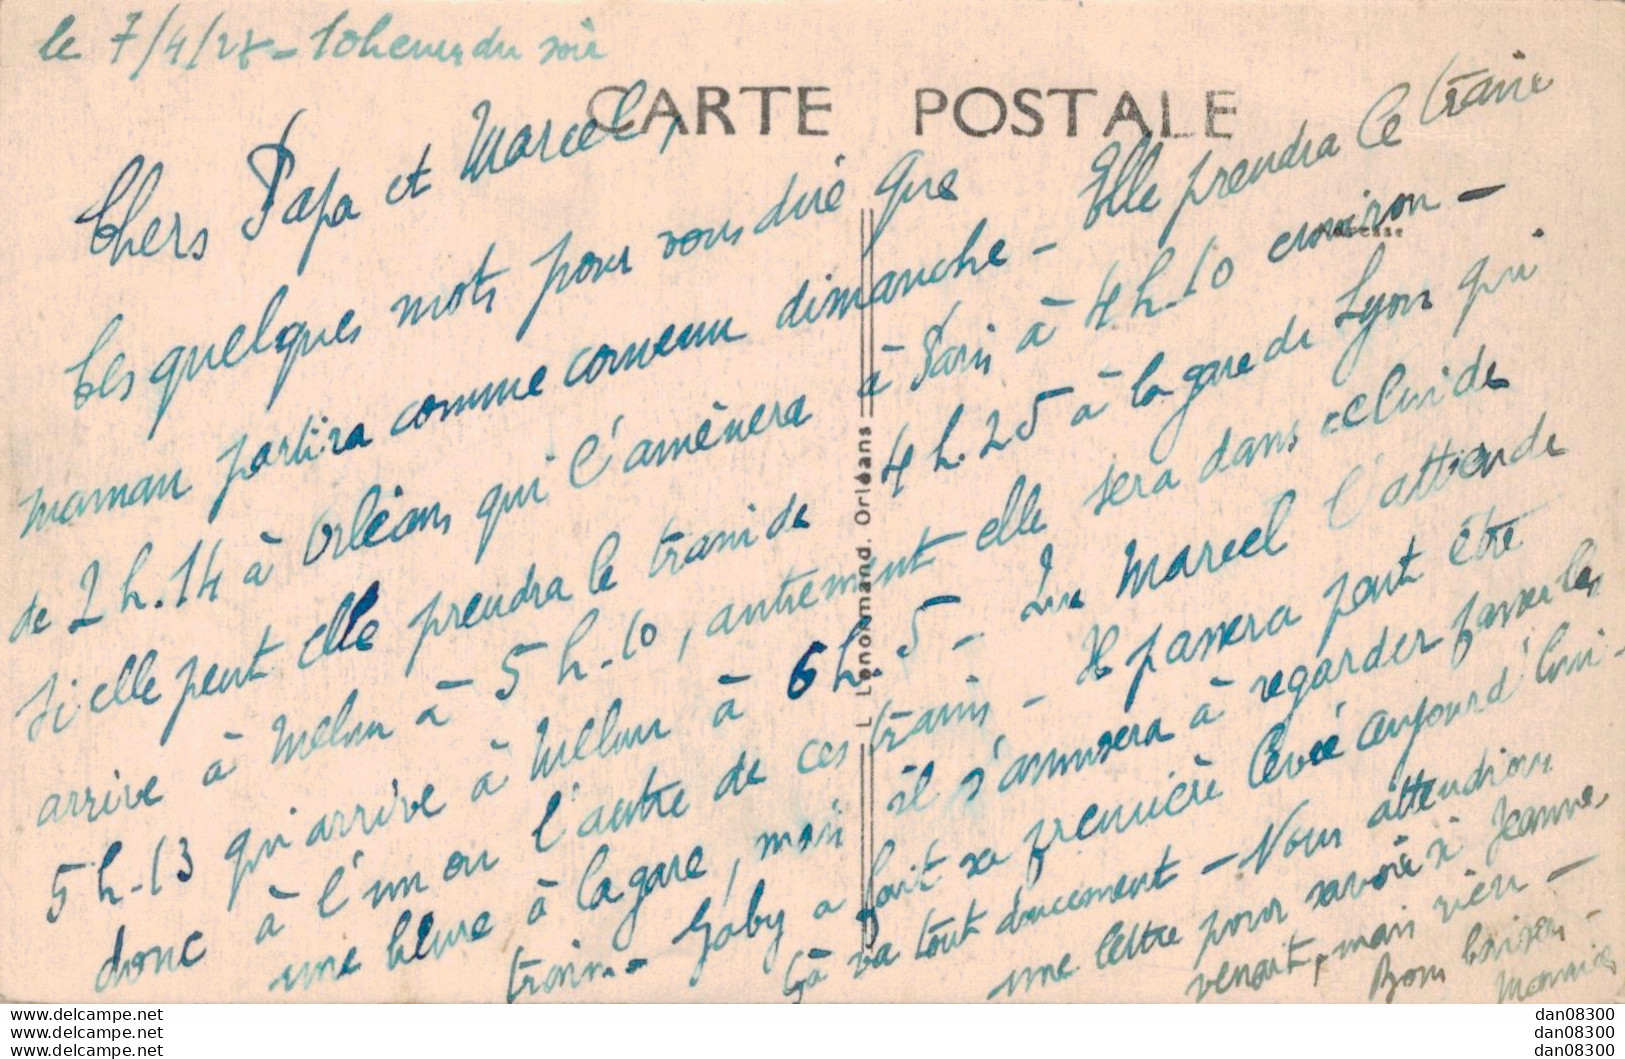 le 7/4/28 - 10 heures du soir
CARTE POSTALE
Adresse
Chers Papa et Marcel,
Ces quelques mots pour vous dire que
maman partira comme convenu dimanche - Elle prendra le train
de 2 h. 14 à Orléans qui l'amènera à Paris à 4 h. 10 environ -
Si elle peut elle prendra le train de 4 h. 25 à la gare de Lyon qui
arrive à Melun à 5 h. 10, autrement elle sera dans celui de
5 h. 13 qui arrive à Melun à 6 h. 5 - Que Marcel l'attende
donc à l'un ou l'autre de ces trains - Il passera peut être
une heure à la gare, mais il s'amusera à regarder passer les
trains - Gaby a fait sa première levée aujourd'hui -
Çà va tout doucement - Nous attendions
une lettre pour savoir si Jeanne
venait, mais rien -
Bons baisers -
L. Lenormand. Orléans
www.delcampe.net
www.delcampe.net
www.delcampe.net
dan08300
dan08300
dan08300